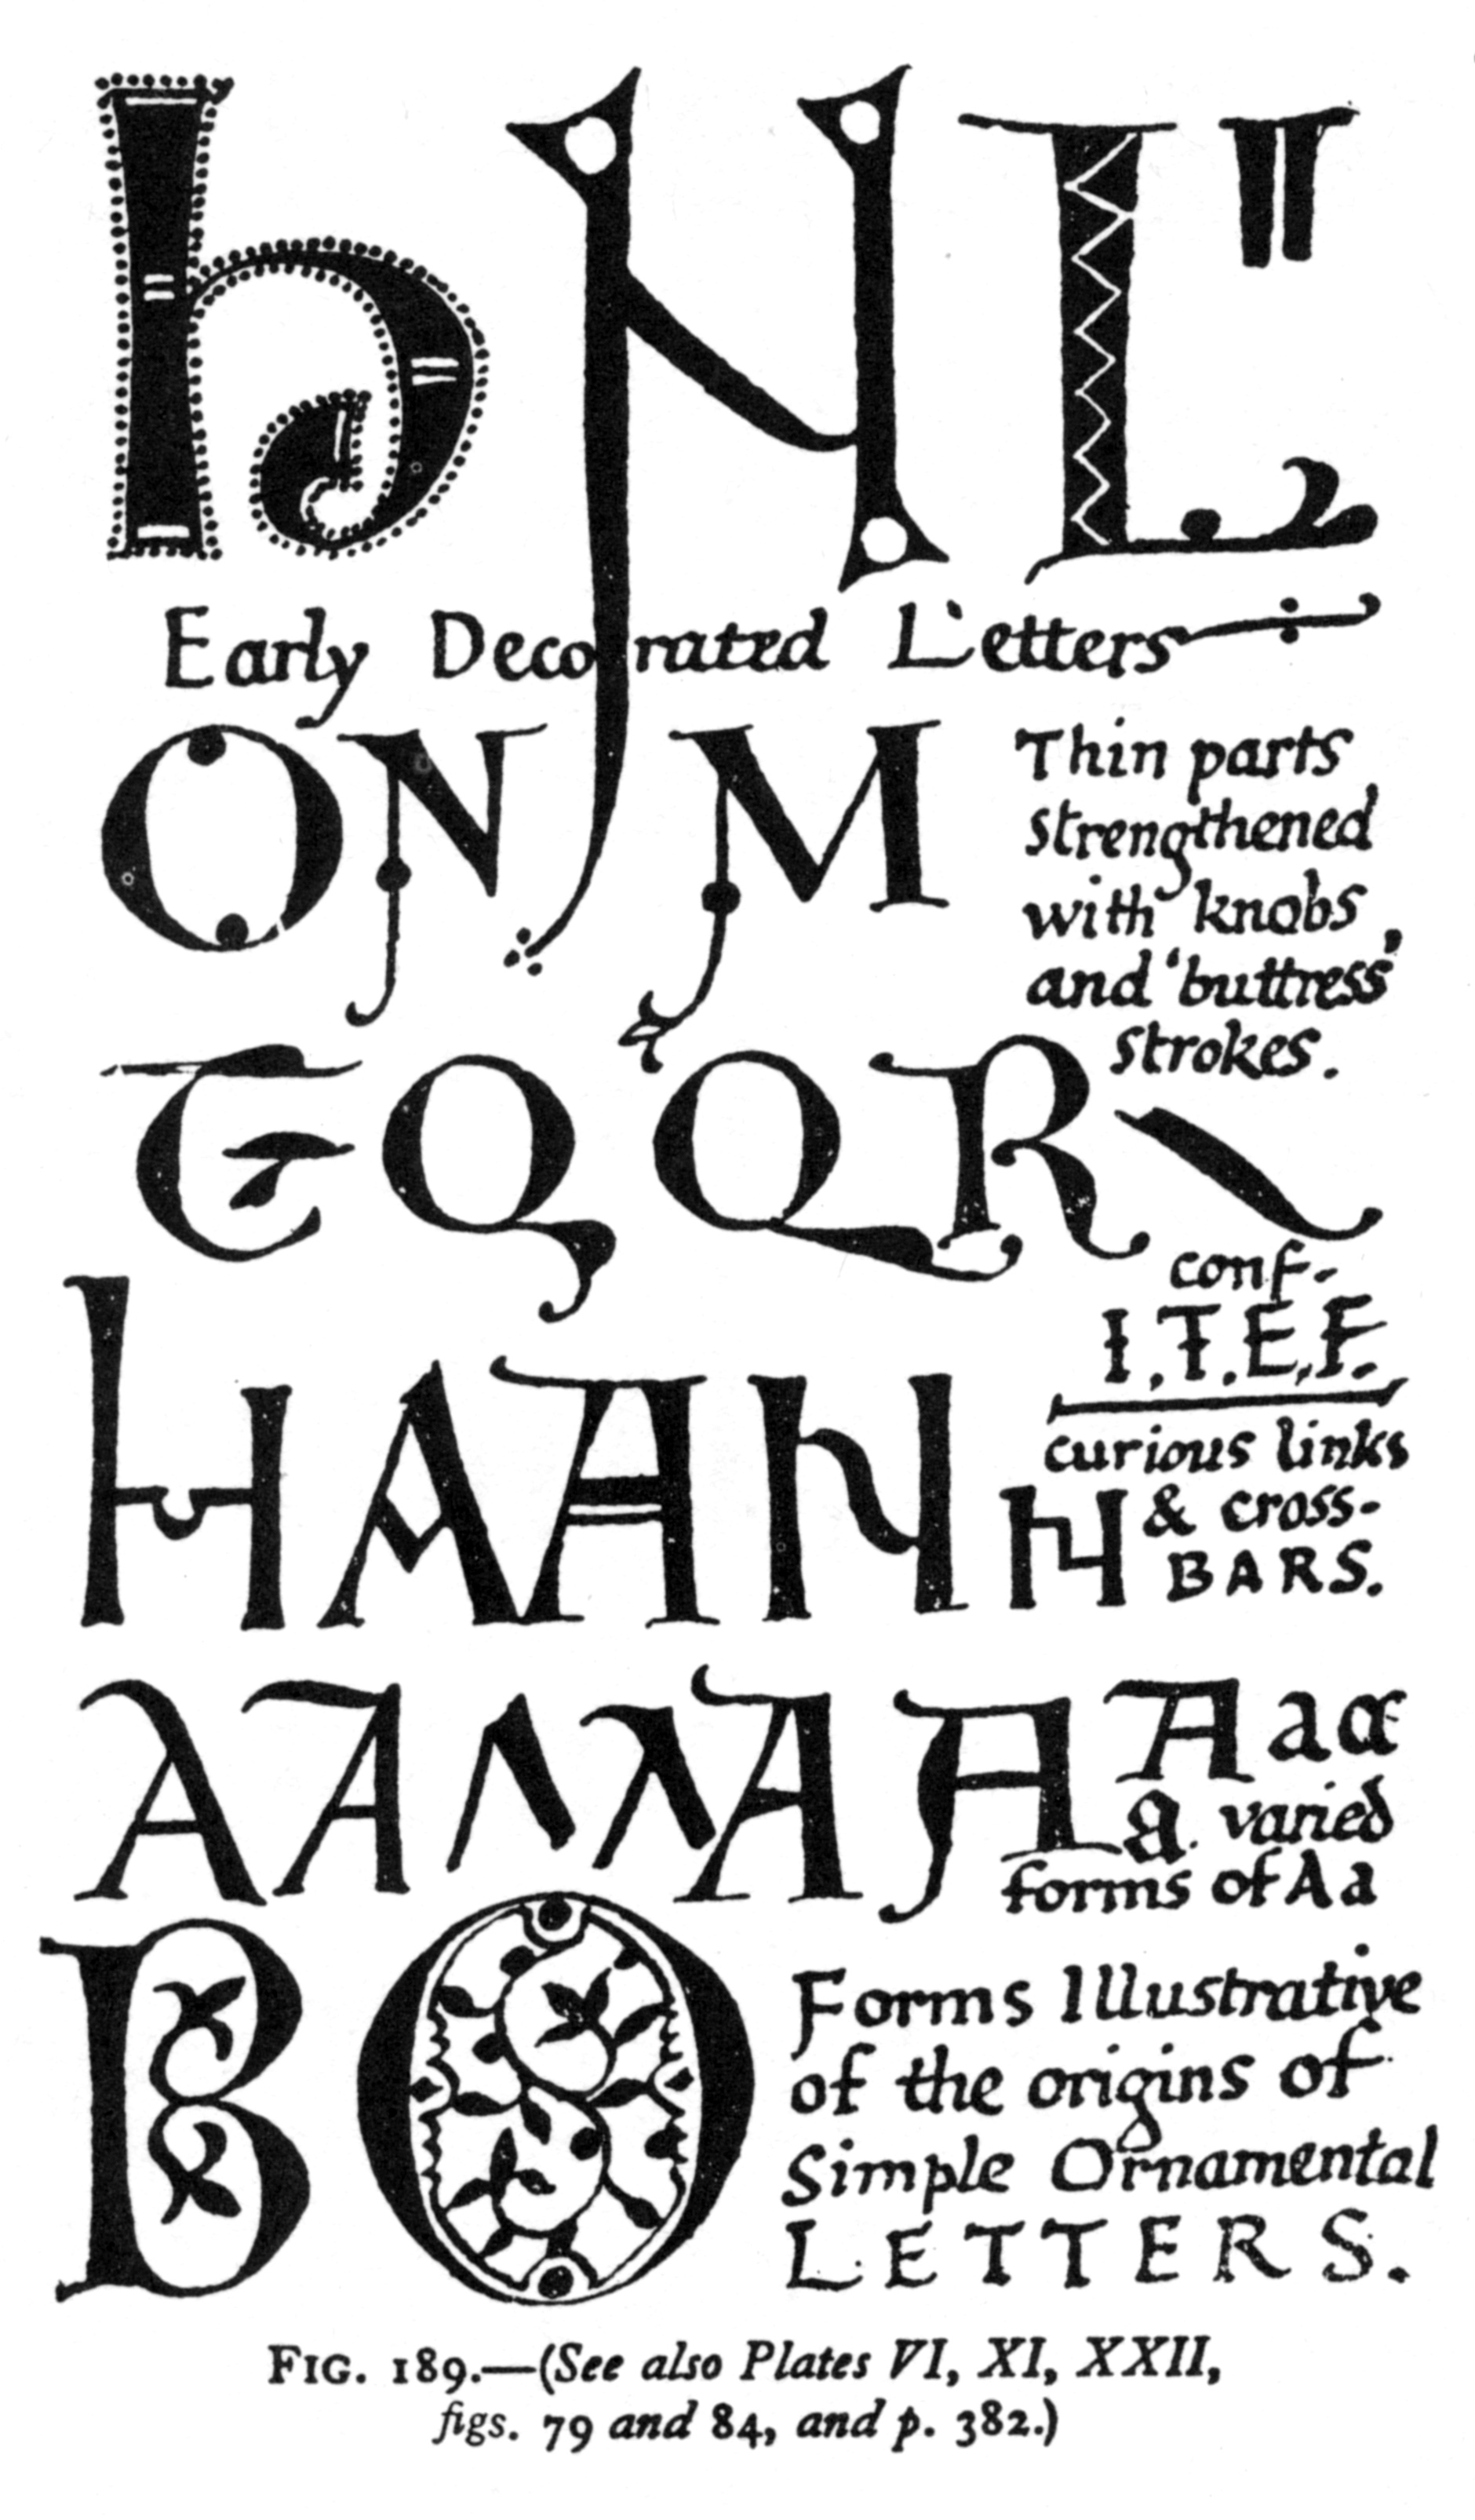 h N L "
Early Decorated Letters
O N M
Thin parts
strengthened
with knobs,
and 'buttress'
strokes.
E Q Q R
conf-
I.T.E.F.
H A A N
curious links
N & cross-
BARS.
A A A A A A A a æ
a. varied
forms of A a
B O
Forms Illustrative
of the origins of
Simple Ornamental
LETTERS.
FIG. 189.—(See also Plates VI, XI, XXII,
figs. 79 and 84, and p. 382.)